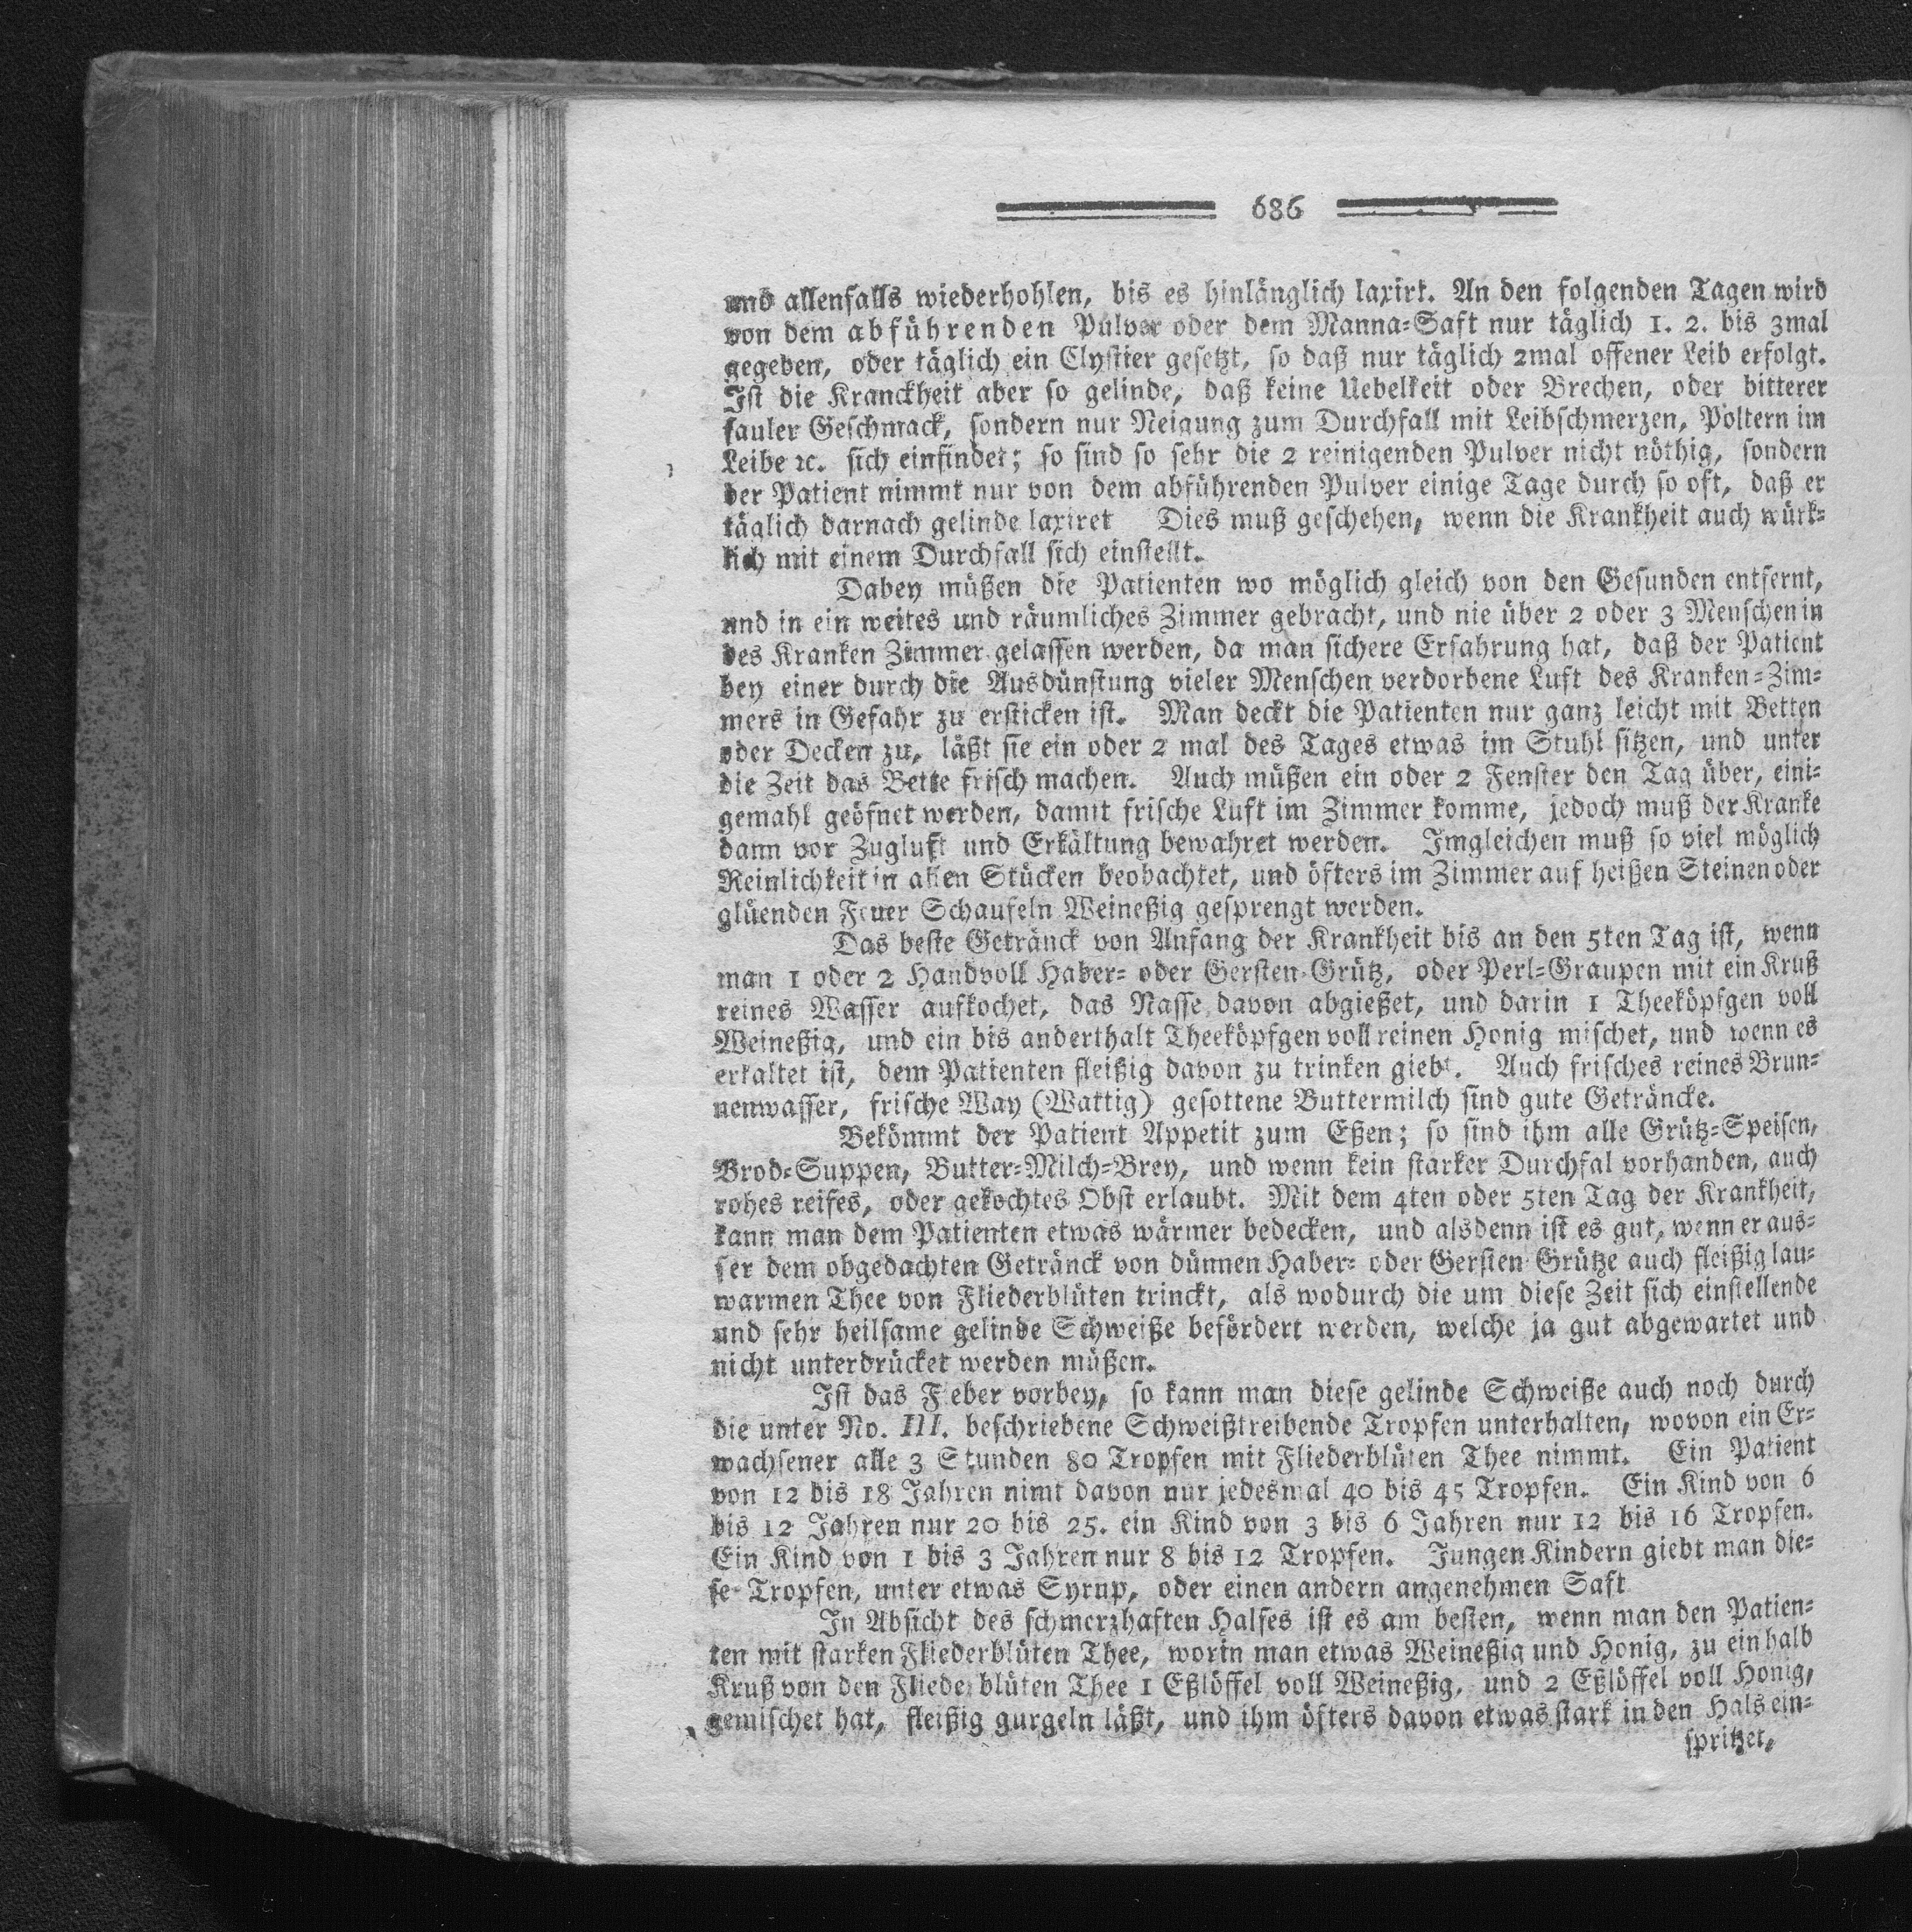 686
und allenfalls wiederhohlen, bis es hinlänglich laxirt. An den folgenden Tagen wird
von dem abführenden Pulver oder dem Manna-Saft nur täglich 1. 2. bis 3mal
gegeben, oder täglich ein Clystier gesetzt, so daß nur täglich 2mal offener Leib erfolgt.
Ist die Kranckheit aber so gelinde, daß keine Uebelkeit oder Brechen, oder bitterer
fauler Geschmack, sondern nur Neigung zum Durchfall mit Leibschmerzen, Poltern im
Leibe ꝛc. sich einfindet; so sind so sehr die 2 reinigenden Pulver nicht nöthig, sondern
der Patient nimmt nur von dem abführenden Pulver einige Tage durch so oft, daß er
täglich darnach gelinde laxiret Dies muß geschehen, wenn die Krankheit auch würk-
lich mit einem Durchfall sich einstellt.
Dabey müßen die Patienten wo möglich gleich von den Gesunden entfernt,
und in ein weites und räumliches Zimmer gebracht, und nie über 2 oder 3 Menschen in
des Kranken Zimmer gelassen werden, da man sichere Erfahrung hat, daß der Patient
bey einer durch die Ausdünstung vieler Menschen verdorbene Luft des Kranken-Zim-
mers in Gefahr zu ersticken ist. Man deckt die Patienten nur ganz leicht mit Betten
oder Decken zu, läßt sie ein oder 2 mal des Tages etwas im Stuhl sitzen, und unter
die Zeit das Bette frisch machen. Auch müßen ein oder 2 Fenster den Tag über, eini-
gemahl geöfnet werden, damit frische Luft im Zimmer komme, jedoch muß der Kranke
dann vor Zugluft und Erkältung bewahret werden. Imgleichen muß so viel möglich
Reinlichkeit in allen Stücken beobachtet, und öfters im Zimmer auf heißen Steinen oder
glüenden Feuer Schaufeln Weineßig gesprengt werden.
Das beste Getränck von Anfang der Krankheit bis an den 5ten Tag ist, wenn
man 1 oder 2 Handvoll Haber- oder Gersten-Grütz, oder Perl-Graupen mit ein Kruß
reines Wasser aufkochet, das Nasse davon abgießet, und darin 1 Theeköpfgen voll
Weineßig, und ein bis anderthalt Theeköpfgen voll reinen Honig mischet, und wenn es
erkaltet ist, dem Patienten fleißig davon zu trinken giebt. Auch frisches reines Brun-
nenwasser, frische Way (Wattig) gesottene Buttermilch sind gute Geträncke.
Bekömmt der Patient Appetit zum Eßen; so sind ihm alle Grütz-Speisen,
Brod-Suppen, Butter-Milch-Brey, und wenn kein starker Durchfal vorhanden, auch
rohes reifes, oder gekochtes Obst erlaubt. Mit dem 4ten oder 5ten Tag der Krankheit,
kann man dem Patienten etwas wärmer bedecken, und alsdenn ist es gut, wenn er aus-
ser dem obgedachten Getränck von dünnen Haber- oder Gersten Grütze auch fleißig lau-
warmen Thee von Fliederblüten trinckt, als wodurch die um diese Zeit sich einstellende
und sehr heilsame gelinde Schweiße befördert werden, welche ja gut abgewartet und
nicht unterdrücket werden müßen.
Ist das Fieber vorbey, so kann man diese gelinde Schweiße auch noch durch
die unter No. III. beschriebene Schweißtreibende Tropfen unterhalten, wovon ein Er-
wachsener alle 3 Stunden 80 Tropfen mit Fliederblüten Thee nimmt. Ein Patient
von 12 bis 18 Jahren nimt davon nur jedesmal 40 bis 45 Tropfen. Ein Kind von 6
bis 12 Jahren nur 20 bis 25. ein Kind von 3 bis 6 Jahren nur 12 bis 16 Tropfen.
Ein Kind von 1 bis 3 Jahren nur 8 bis 12 Tropfen. Jungen Kindern giebt man die-
se Tropfen, unter etwas Syrup, oder einen andern angenehmen Saft
In Absicht des schmerzhaften Halses ist es am besten, wenn man den Patien-
ten mit starken Fliederblüten Thee, worin man etwas Weineßig und Honig, zu ein halb
Kruß von den Fliederblüten Thee 1 Eßlöffel voll Weineßig, und 2 Eßlöffel voll Honig,
gemischet hat, fleißig gurgeln läßt, und ihm öfters davon etwas stark in den Hals ein-
spritzet,